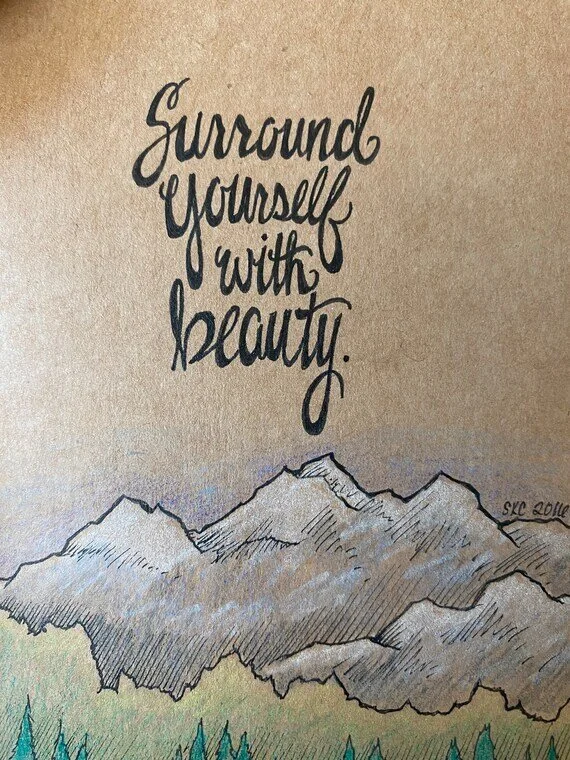 Surround
yourself
with
beauty.
SKC 2016